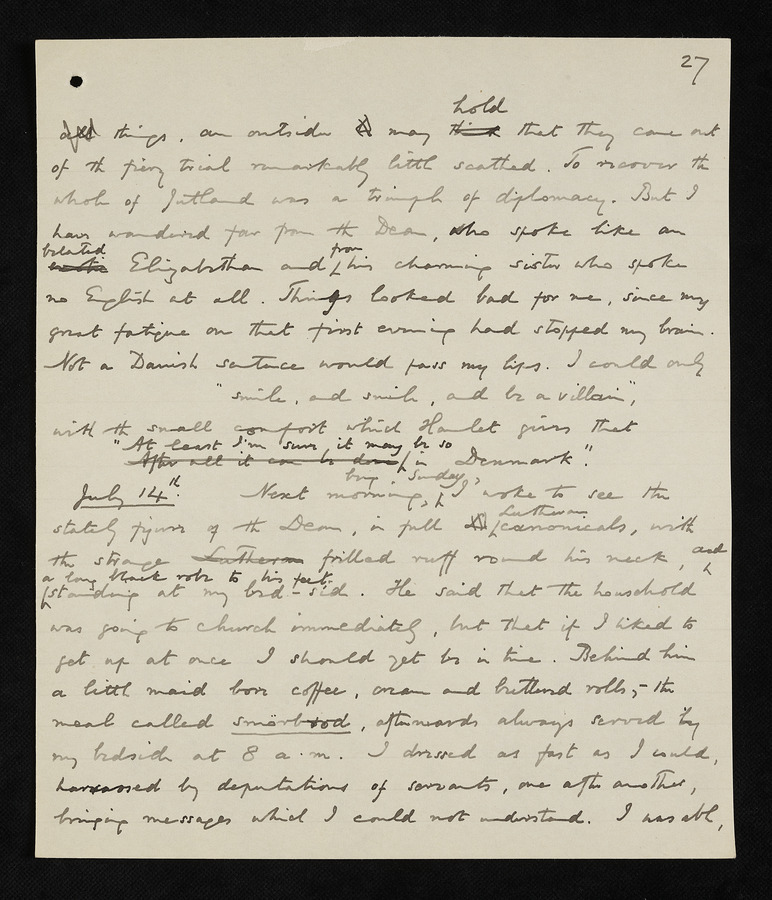 27
hold
things, an outside may think that they came out
of th fiery trial remarkably little scathed. To recover th
whole of Jutland was a triumph of diplomacy. But I
have wandered far from th Dean, who spoke like an
belated from
Elizabethan and his charming sister who spoke
no English at all. Things looked bad for me, since my
great fatigue on that first evening had stopped my brain.
Not a Danish sentence would pass my lips. I could only
"smile, and smile, and be a villain",
with th small comfort which Hamlet gives that
"At least I'm sure it may be so
After all it can be done in Denmark".
being Sunday,
July 14th. Next morning, I woke to see the
Lutheran
stately figure of th Dean, in full canonicals, with
the strange Lutheran frilled ruff round his neck, and
a long black robe to his feet.
standing at my bed-side. He said that the household
was going to church immediately, but that if I liked to
get up at once I should yet be in time. Behind him
a little maid bore coffee, cream and buttered rolls,- the
meal called smörbrod, afterwards always served by
my bedside at 8 a.m. I dressed as fast as I could,
harassed by deputations of servants, one after another,
bringing messages which I could not understand. I was able,